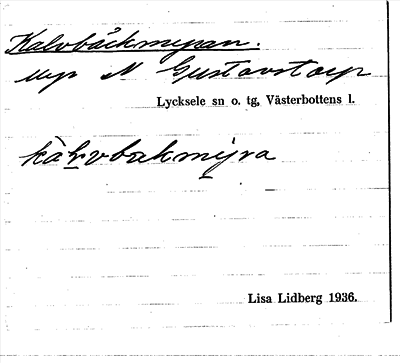 Kalvbäckmyran.
Myr N Gustavstorp
Lycksele sn o. tg, Västerbottens l.
Lisa Lidberg 1936.